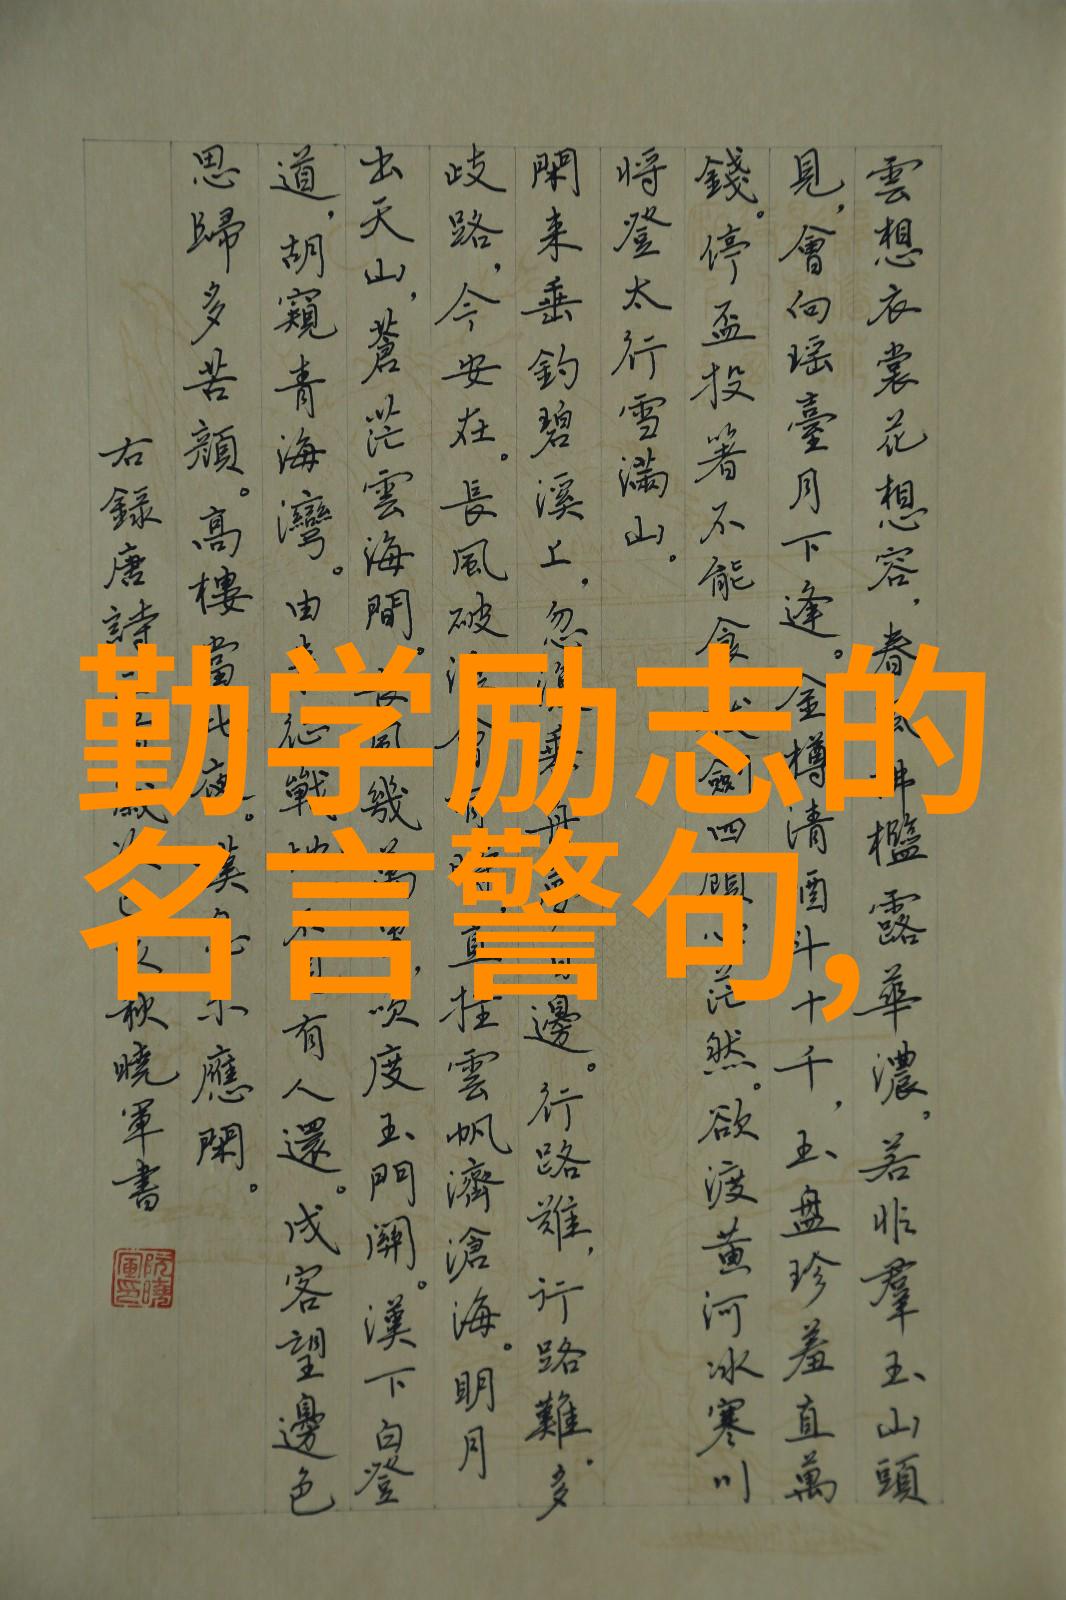 勤学励志的
名言警句,
雲想衣裳花想容，春風拂檻露華濃。若非羣玉山頭
見，會向瑶臺月下逢。金樽清酒斗十千，玉盘珍羞直萬
錢。停盃投箸不能食拔劍四顧心茫然。欲渡黄河冰寒川
将登太行雪滿山。
閑来垂釣碧溪上，忽復乗舟夢日邊。行路難，行路難。多
歧路，今安在。長風破浪會有時，直挂雲帆濟滄海。明月
出天山，蒼茫雲海間。長風幾萬里，吹度玉門關。漢下白登
道，胡窺青海灣。由来征戰地不見有人還。戍客望邊色
思歸多苦顏。高樓當此夜。嘆息未應閑。
右録唐詩歲次秋曉軍書
阮曉軍印